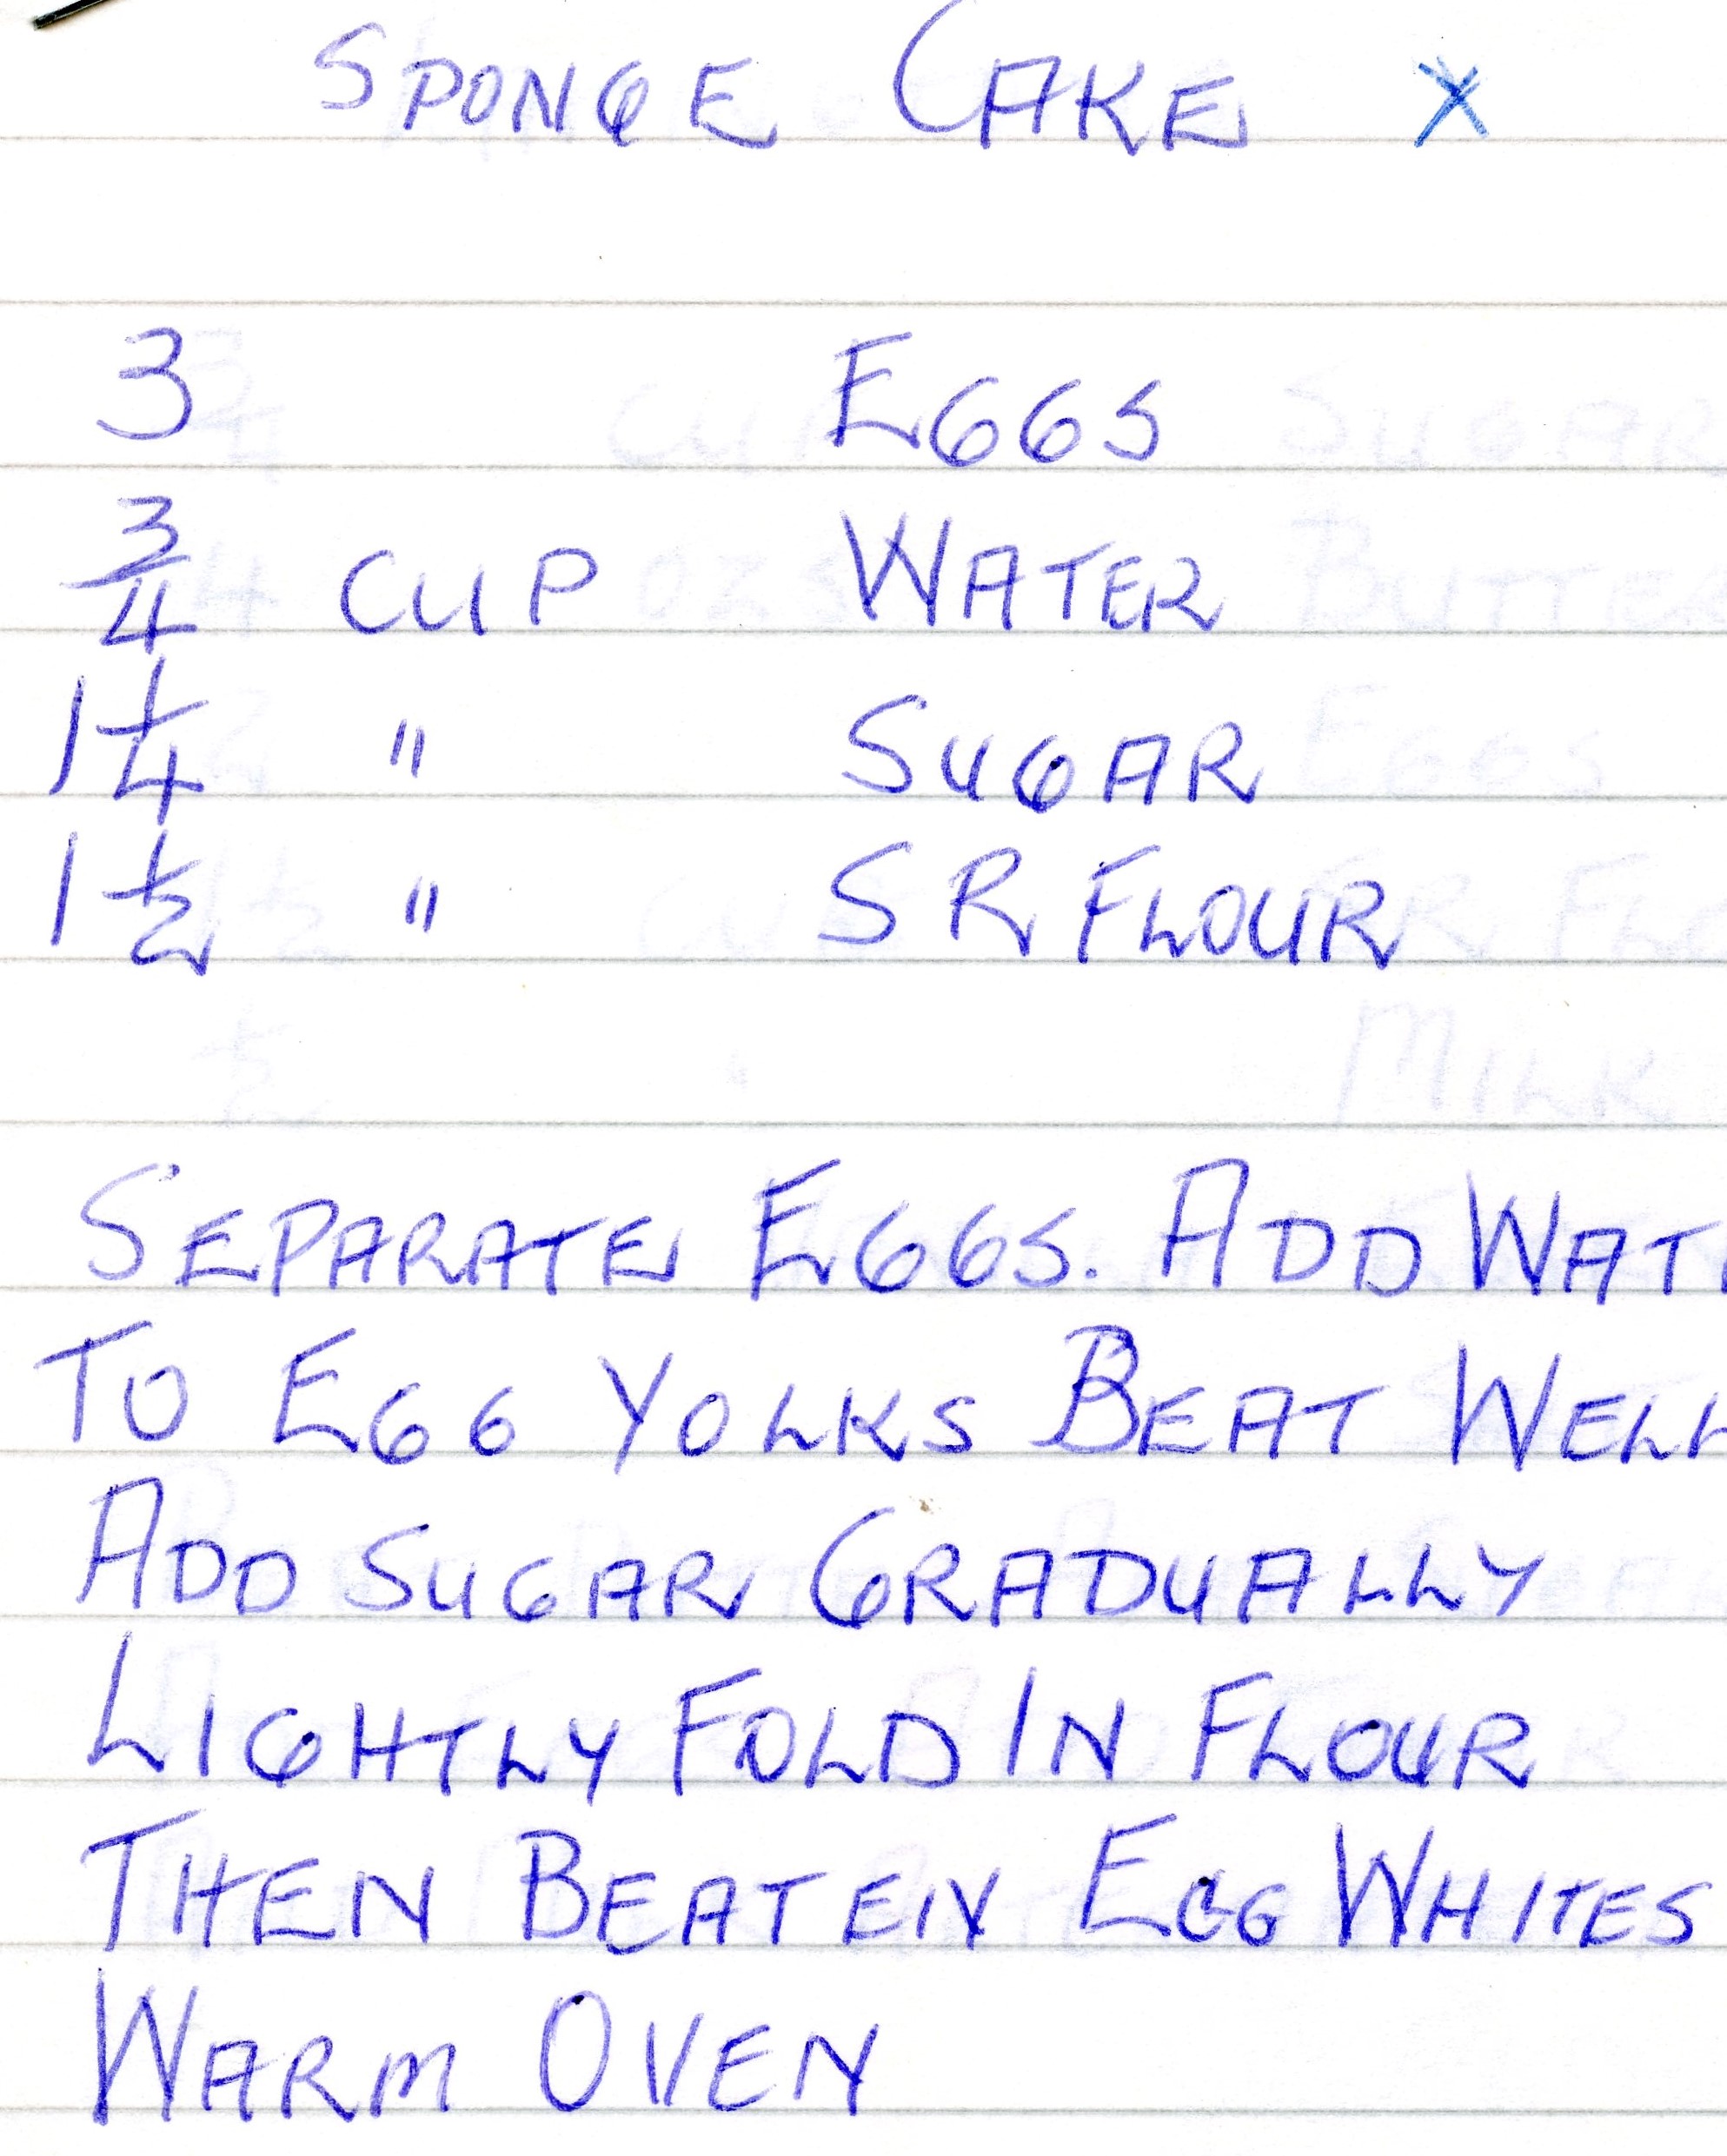 SPONGE CAKE X
3 EGGS
3/4 CUP WATER
1 1/4 " SUGAR
1 1/2 " SR FLOUR
SEPARATE EGGS. ADD WAT
TO EGG YOLKS BEAT WELL
ADD SUGAR GRADUALLY
LIGHTLY FOLD IN FLOUR
THEN BEATEN EGG WHITES
WARM OVEN